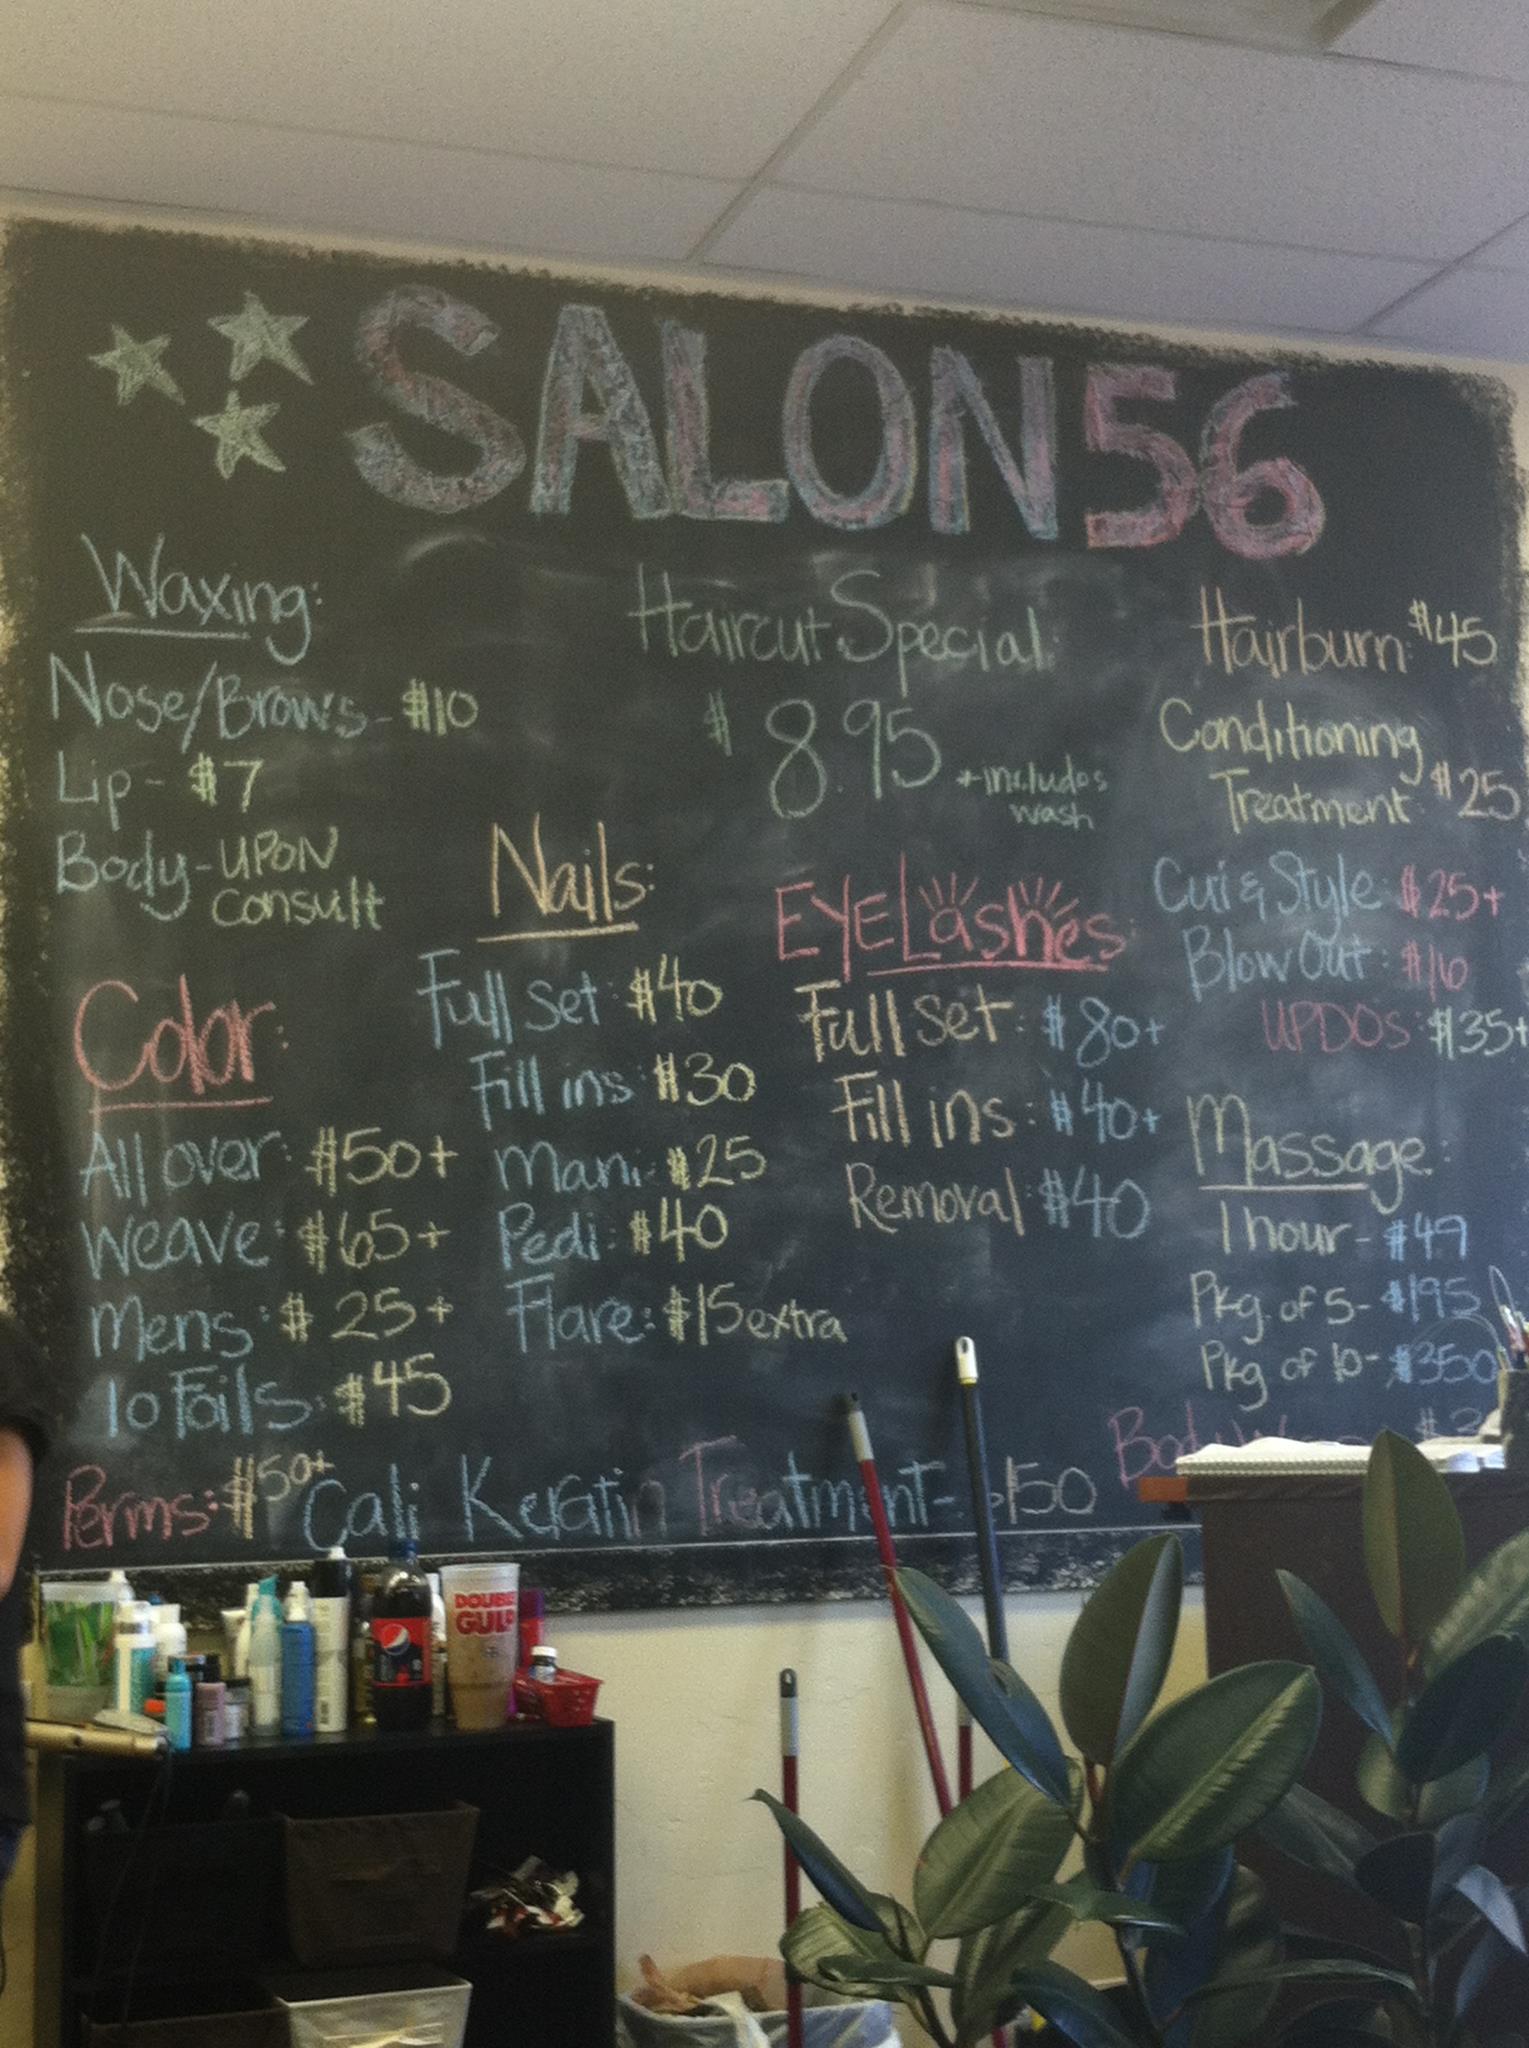 SALON 56
Waxing:
Nose/Brows - $10
Lip - $7
Body - UPON
consult
Haircut Special:
$8.95 + includes
wash
Hairburn: $45
Conditioning
Treatment: $25
Curl & Style: $25+
Blow Out: $16
UPDOS: $35+
Nails:
Full Set: $40
Fill ins: $30
Mani: $25
Pedi: $40
Flare: $15 extra
EYELashes:
Full Set: $80+
Fill ins: $40+
Removal: $40
Color:
All over: $50+
Weave: $65+
Mens: $25+
10 Foils: $45
Massage:
1 hour - $49
Pkg. of 5 - $195
Pkg of 10 - $350
Body
Perms: $50+
Cali Keratin Treatment - $150
DOUBLE
GULP